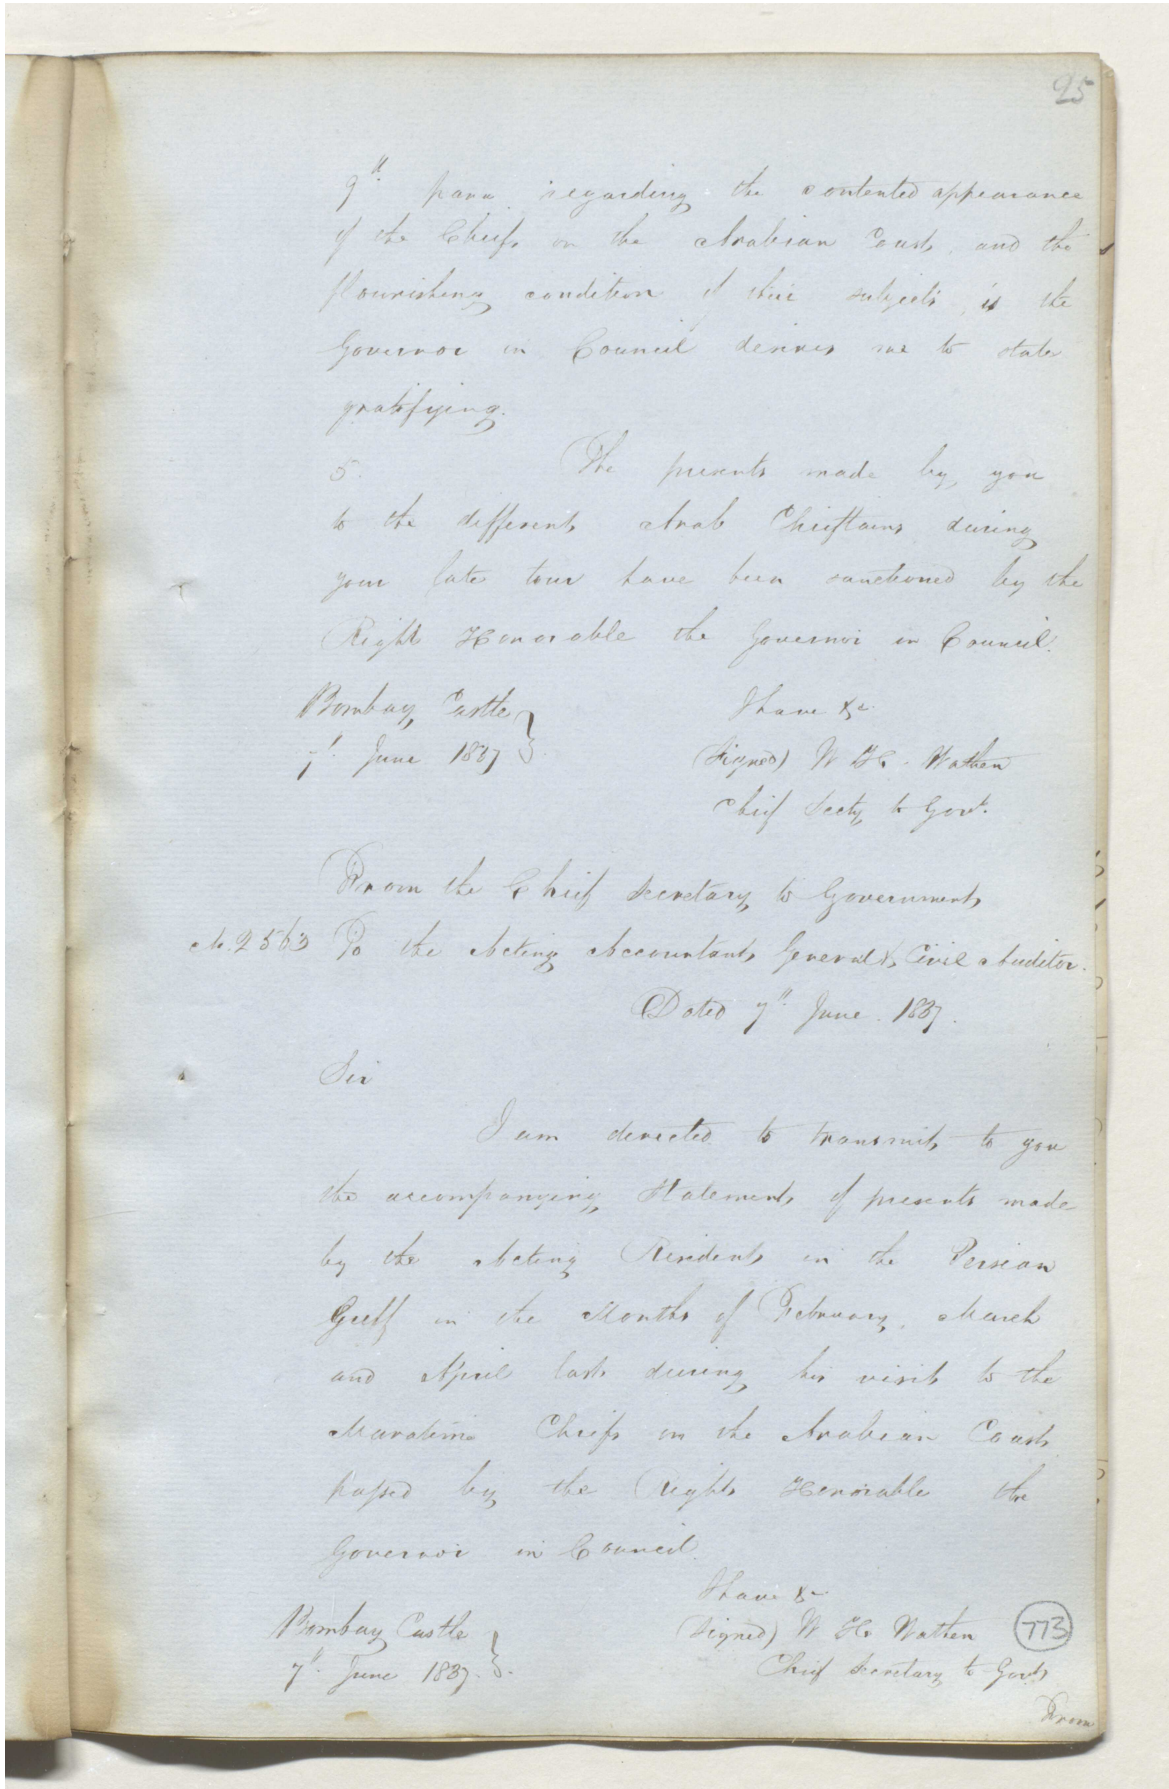 95
9th para regarding the contented appearance
of the Chiefs on the Arabian Coast, and the
flourishing condition of their subjects, is the
Governor in Council desires me to state
gratifying.
5. The presents made by you
to the different Arab Chieftains during
your late tour have been sanctioned by the
Right Honorable the Governor in Council.
Bombay Castle } I have &c.
7th June 1837 (Signed) W H. Wathen
Chief Secty to Govt.
From the Chief Secretary to Government
No. 2563 To the Acting Accountant General & Civil Auditor.
Dated 7th June. 1837.
Sir
I am directed to transmit to you
the accompanying Statement of presents made
by the Acting Resident in the Persian
Gulf in the Months of February, March
and April last during his visit to the
Maratime Chiefs on the Arabian Coast
passed by the Right Honorable the
Governor in Council.
I have &c
Bombay Castle } (Signed) W H. Wathen 773
7th June 1837. Chief Secretary to Govt
From